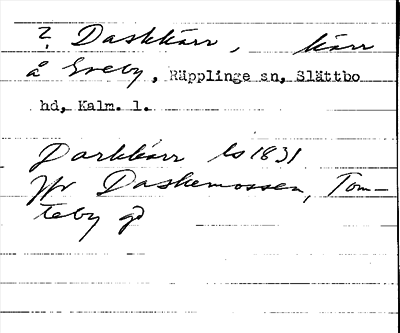 ? Daskkärr, kärr
å Greby, Räpplinge sn, Slättbo
hd, Kalm. l.
Darkkärr ls 1831
Jfr Daskemossen, Tom-
teby gd